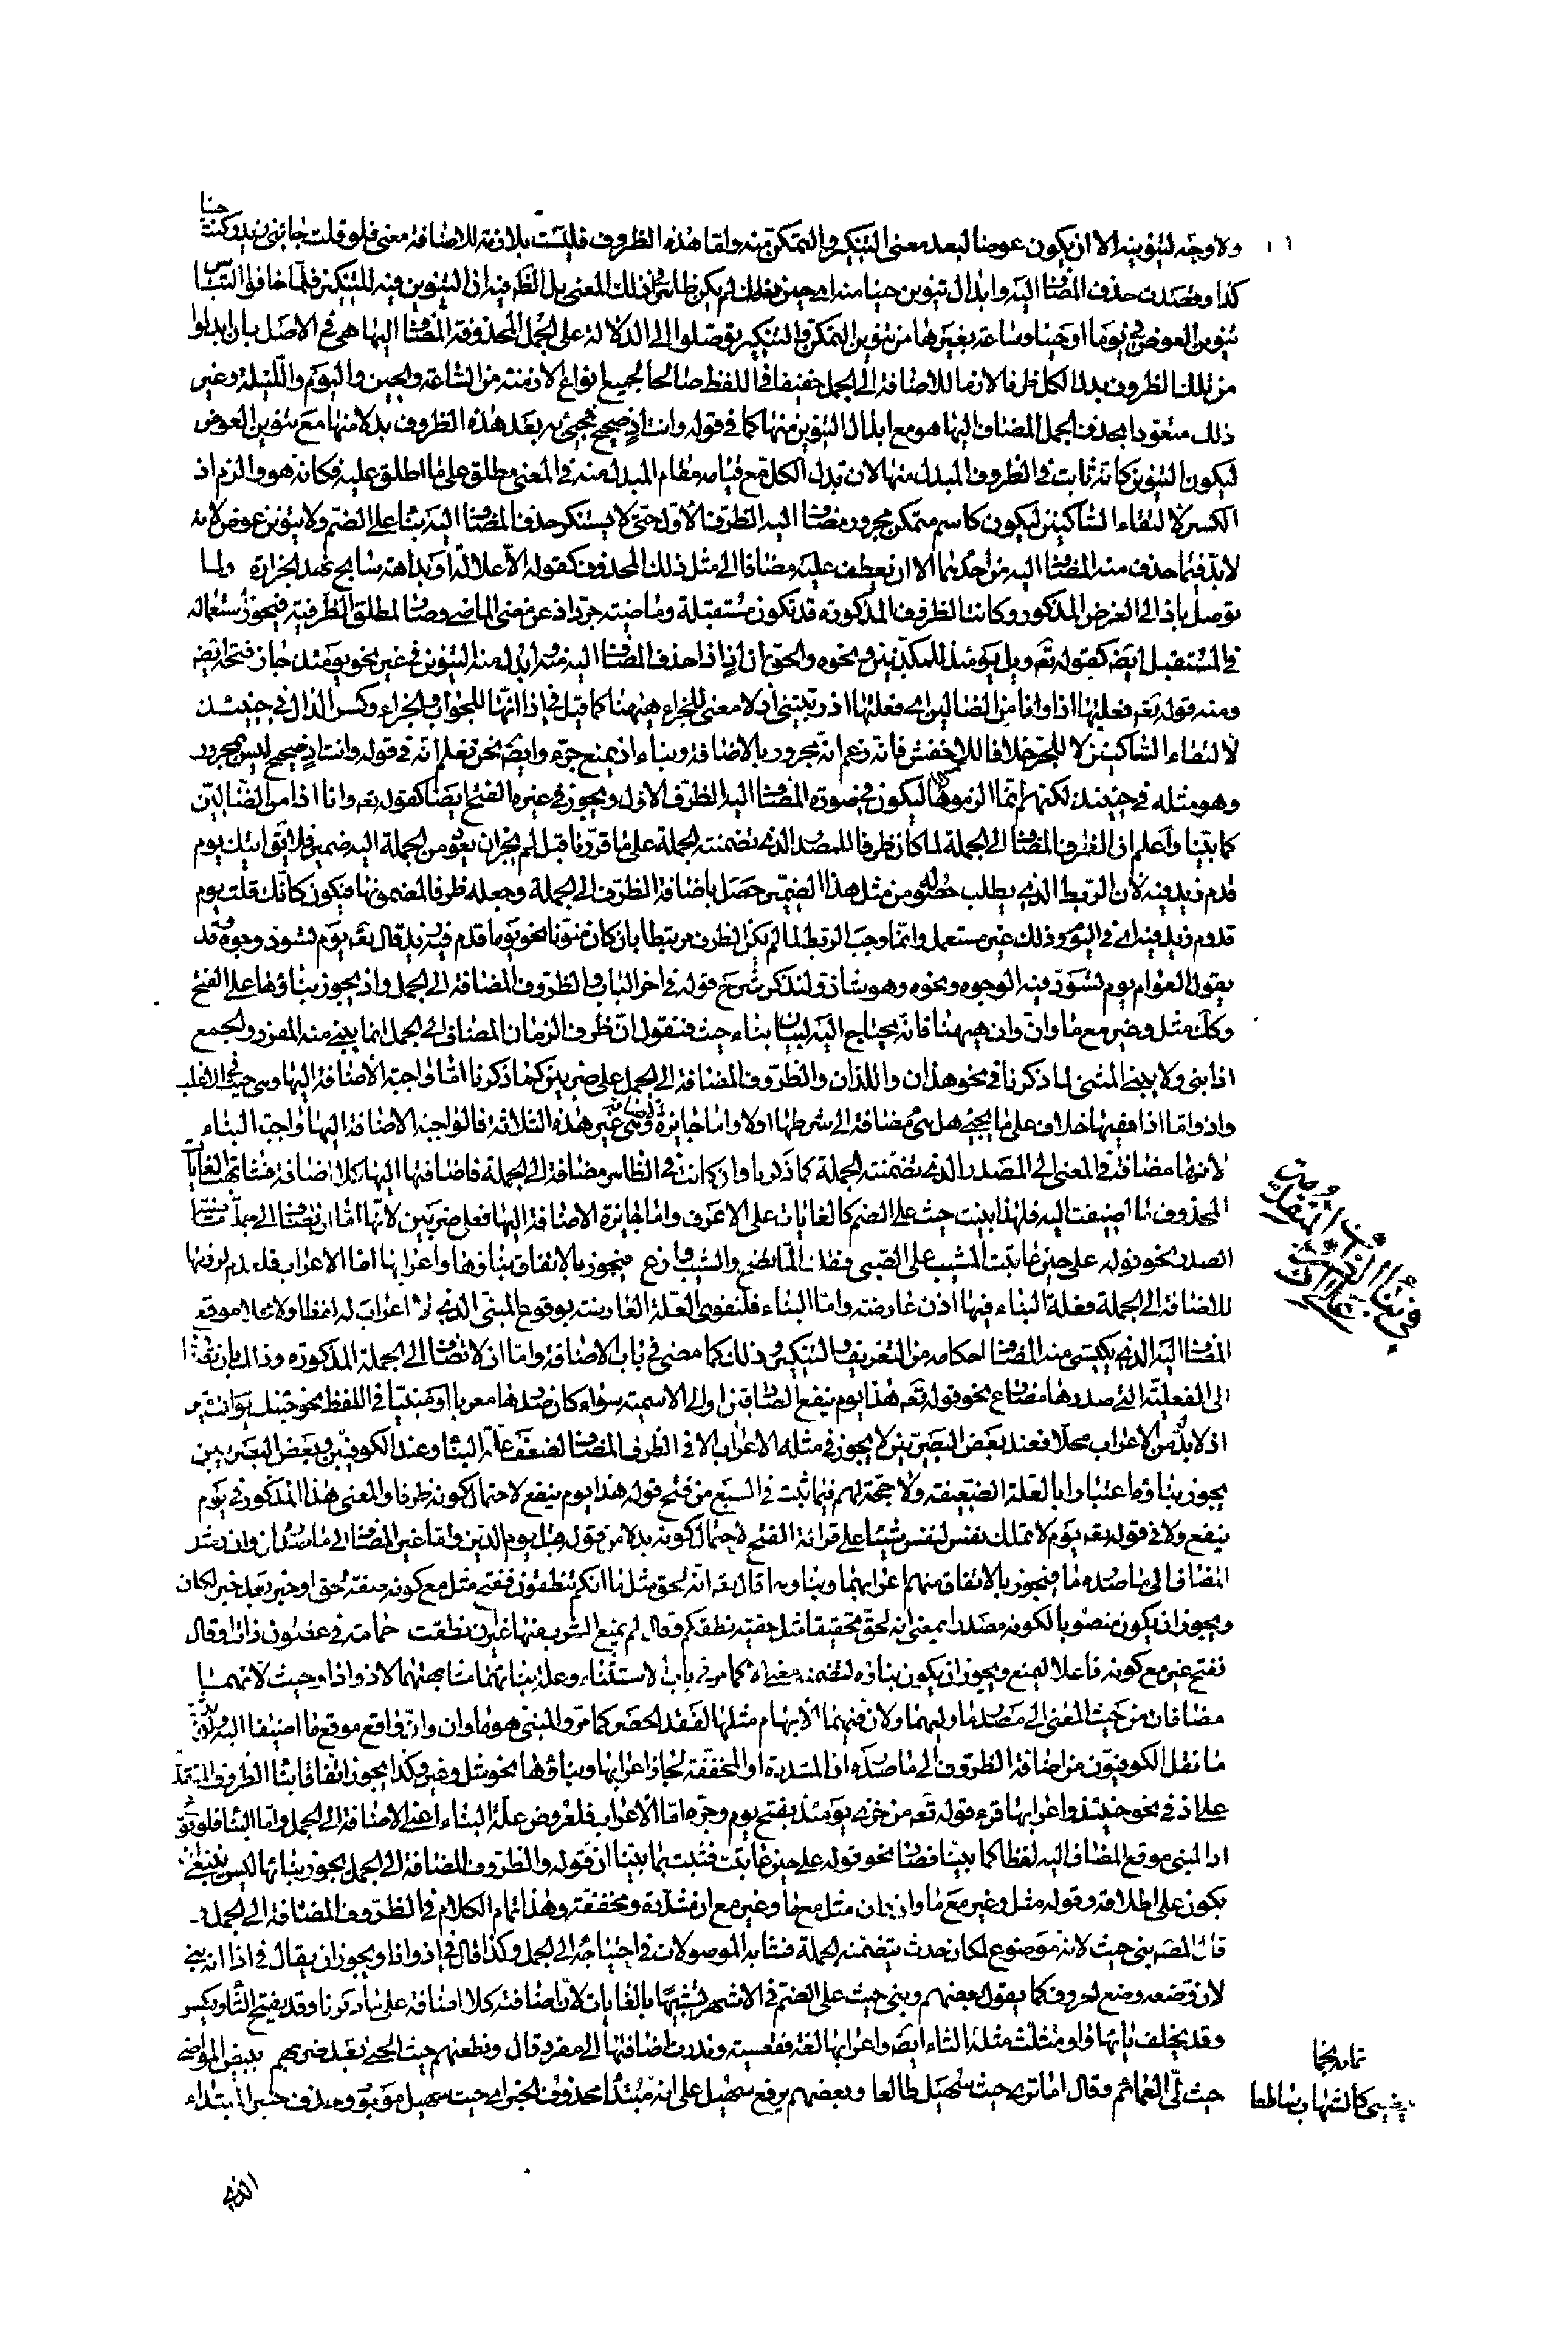 ولا وجه لتنوينه الا ان يكون عوضا لبعد معنى التنكير والتمكن منه واما هذه الظروف فليست بلازمة للاضافة معنى فلو قلت جاءنى زيد وكنت حينا
كذا وقصدت حذف المضاف اليه وابدال تنوين حينا منه اى حين ذلك لم يكن ظاهرا فى ذلك المعنى بل الظاهر فيه ان التنوين فيه للتنكير فلما خافوا التباس
تنوين العوض فى يوما او حينا وساعة بغيرها من تنوين التمكن والتنكير توصلوا الى الدلالة على الجمل المحذوفة المضاف اليها هى فى الاصل بان ابدلوا
من تلك الظروف بدل الكل ظرفا لازما للاضافة الى الجمل خفيفا فى اللفظ صالحا لجميع انواع الازمنة من الساعة والحين واليوم والليلة وغير
ذلك متعودا بحذف الجمل المضاف اليها هو مع ابدال التنوين منها كما فى قوله وانت اذ صحيح فجىء به بعد هذه الظروف بدلا منها مع تنوين العوض
ليكون التنوين كانه ثابت فى الظروف المبدل منها لان بدل الكل مع قيامه مقام المبدل منه فى المعنى مطلق على ما اطلق عليه فكانه هو والزم اذ
الكسر لالتقاء الساكنين ليكون كاسم متمكن مجرور مضاف اليه الظرف الاول حتى لا يستنكر حذف المضاف اليه بلا بناء على الضم ولا تنوين عوض لانه
لابد فيما حذف منه المضاف اليه من احدهما الا ان يعطف عليه مضاف الى مثل ذلك المحذوف كقوله الا علالة او بداهة سابح نهد الجزارة ولما
توصل باذ الى الغرض المذكور وكانت الظروف المذكورة قد تكون مستقبلة وماضية جرد اذ عن معنى الماضى وصار لمطلق الظرفية فيجوز استعماله
فى المستقبل ايضا كقوله تعه ويل يومئذ للمكذبين ونحوه والحق ان اذ اذا حذف المضاف اليه منه وابدل منه التنوين فى غير نحو يومئذ جاز فتحه ايضا
ومنه قوله تعه فعلتها اذا وانا من الضالين اى فعلتها اذ ربيتنى اذ لا معنى للجزاء ههنا كما قيل فى اذا انها للجواب والجزاء وكسر الذال فى حينئذ
لالتقاء الساكنين لا للجر خلافا للاخفش فانه زعم انه مجرور بالاضافة وبناء اذ يمنع جره وايضا نحن نعلم انه فى قوله وانت اذ صحيح ليس بمجرور
وهو مثله فى حينئذ لكنهم انما الزموها ليكون فى صورة المضاف اليه الظرف الاول ويجوز فى غيره الفتح ايضا كقوله تعه وانا اذا من الضالين
كما بينا واعلم ان الظرف المضاف الى الجملة لما كان ظرفا للمصدر الذى تضمنته الجملة على ما قررنا قبل لم يجز ان يعود من الجملة اليه ضمير فلا يقال اتيتك يوم
قدم زيد فيه لان الربط الذى يطلب حصوله من مثل هذا الضمير حصل باضافة الظرف الى الجملة وجعله ظرفا لمضمونها فيكون كانك قلت يوم
قدوم زيد فيه اى فى اليوم وذلك غير مستعمل وانما وجب الربط لما لم يكن الظرف مرتبطا بان كان منونا نحو يوما قدم فيه زيد قال تعه يوم تسود وجوه وقد
يقول العوام يوم تسود فيه الوجوه ونحوه وهو شاذ ولنذكر شرح قوله فى اخر الباب والظروف المضافة الى الجمل واذ يجوز بناؤها على الفتح
وكذلك مثل وغير مع ما وان وان ههنا فانه يحتاج اليه لبيان بناء حيث فنقول ان ظروف الزمان المضاف الى الجمل انما يبنى منه المفرد والجمع
اذا بنى ولا يبنى المثنى لما ذكرنا فى نحو هذان واللذان والظروف المضافة الى الجمل على ضربين كما ذكرنا اما واجبة الاضافة اليها وهى حيث فى الاغلب
واذ واما اذا ففيها خلاف على ما يجىء هل هى مضافة الى شرطها اولا واما جايزة الاضافة وهى غير هذه الثلاثة فالواجبة الاضافة اليها واجبة البناء
لانها مضافة فى المعنى الى المصدر الذى تضمنته الجملة كما ذكرنا وان كانت فى الظاهر مضافة الى الجملة فاضافتها اليها كلا اضافة فشابهت الغايات
المحذوف ما اضيفت اليه فلهذا بنيت حيث على الضم كالغايات على الاعرف واما الجايزة الاضافة اليها فعلى ضربين لانها اما ان تضاف الى
الصدر نحو قوله على حين عاتبت المشيب على الصبى فقلت الما تصح والشيب وازع فيجوز بالاتفاق بناؤها واعرابها اما الاعراب فلعدم لزومها
للاضافة الى الجملة فعلة البناء فيها اذن عارضة واما البناء فلتقوى العلة العارضة بوقوع المبنى الذى لا اعراب له لفظا ولا محلا موقع
المضاف اليه الذى يكتسى منه المضاف احكامه من التعريف والتنكير وغير ذلك كما مضى فى باب الاضافة واما ان لا تضاف الى الجملة المذكورة وذلك بان تضاف
الى الفعلية التى صدرها مضارع نحو قوله تعه هذا يوم ينفع الصادقين او الى الاسمية سواء كان صدرها معربا او مبنيا فى اللفظ نحو جئتك يوم انت امير
اذ لابد من الاعراب محلا فعند بعض البصريين لا يجوز فى مثله الا الاعراب فى الظرف المضاف لضعف علة البناء وعند الكوفيين وبعض البصريين
يجوز بناؤه اعتبارا بالعلة الضعيفة ولا حجة لهم فيما ثبت فى السبع من فتح قوله هذا يوم ينفع لاحتمال كونه ظرفا والمعنى هذا المذكور فى يوم
ينفع ولا فى قوله تعه يوم لا تملك نفس لنفس شيئا على قراءة الفتح لاحتمال كونه بدلا من قوله قبل يوم الدين واما غير المضاف الى ما صدره ان ومثل
المضاف الى ما صدره ما فيجوز بالاتفاق منهم اعرابهما وبناؤهما قال تعه انه لحق مثل ما انكم تنطقون ففتح مثل مع كونه صفة لحق او خبرا بعد خبر لكان
ويجوز ان يكون منصوبا لكونه مصدرا بمعنى انه لحق تحقيقا مثل حقية نطقكم وقال لم يمنع الشرب منها غير ان نطقت حمامة فى غصون ذات اوقال
بفتح غير مع كونه فاعلا ليمنع ويجوز ان يكون بناؤه لتضمنه معنى الا كما مر فى باب الاستثناء وعلة بنائهما مشابهتهما لاذ واذا وحيث لانهما
مضافان من حيث المعنى الى مصدر ما وليهما ولان فيهما الابهام مثلها لفقد الحصر كما مر والمبنى هو ما وان وان واقع موقع ما اضيفا اليه
ما نقل الكوفيون من اضافة الظروف الى ما صدره ان المشددة او المخففة لجاز اعرابها وبناؤها نحو مثل وغير وكذا يجوز اتفاقا بناء الظروف المتقدمة
على اذ فى نحو حينئذ واعرابها قرء قوله تعه من خزى يومئذ بفتح يوم وجره اما الاعراب فلعروض علة البناء اعنى الاضافة الى الجمل واما البناء فلوقوع
اذ المبنى موقع المضاف اليه لفظا كما بينا فصار نحو قوله على حين عاتبت فثبت بما بينا ان قوله والظروف المضافة الى الجمل يجوز بناؤها ليس ينبغى ان
يكون على اطلاقه وقوله مثل وغير مع ما وان وان مثل مع ما وغير مع ان مشددة ومخففة وهذا تمام الكلام فى الظروف المضافة الى الجمل
قال المص بنى حيث لانه موضوع لمكان حدث يتضمنه الجملة فشابه الموصولات فى احتياجه الى الجمل وكذا قال فى اذ واذا ويجوز ان يقال فى اذ انه بنى
لان وضعه وضع الحروف كما يقول بعضهم وبنى حيث على الضم فى الاشهر تشبيها بالغايات لان اضافته كلا اضافة على ما ذكرنا وقد يفتح الثاء ويكسر
وقد يخلف ياءها واو مثلث مثلثة الثاء ايضا واعرابها لغة فقعسية وندرت اضافتها الى مفرد قال ونطعنهم حيث الحبى بعد ضربهم ببيض المواضى
حيث لى العمائم وقال اما ترى حيث سهيل طالعا وبعضهم يرفع سهيل على انه مبتدأ محذوف الخبر اى حيث سهيل موجود وحذف خبر المبتداء
تمامه نجما
يضىء كالشهاب ساطعا
الذى